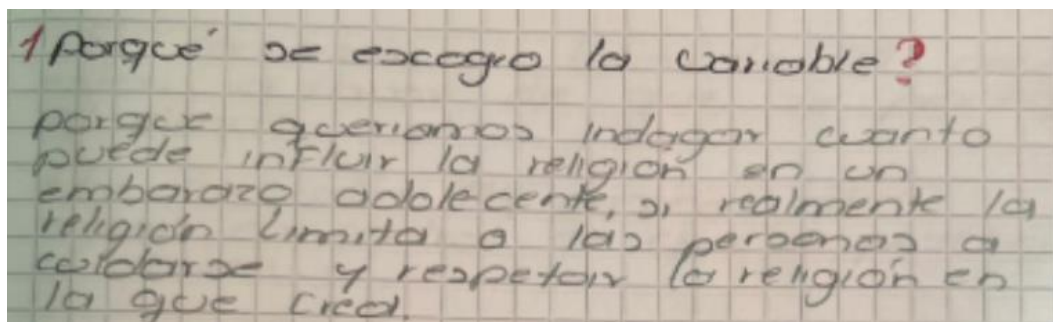 1 Porqué se escogio la variable?
porque queriamos indagar cuanto
puede influir la religión en un
embarazo adolecente, si realmente la
religión limita a las personas a
cuidarse y respetar la religión en
la que cree.